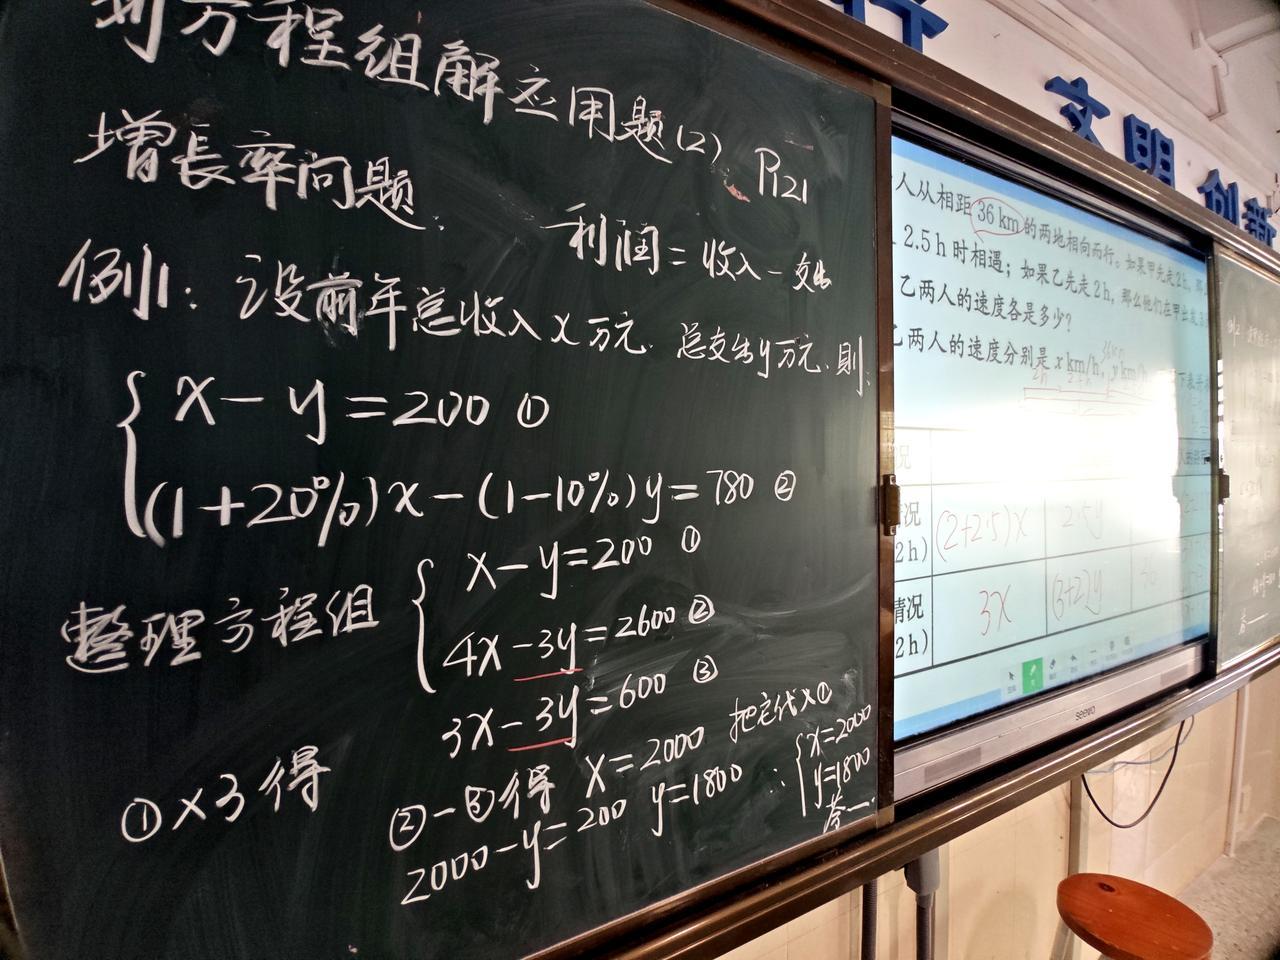 列方程组解应用题(2) P121
增長率问题.
利润=收入-支出
例1: 设前年总收入x万元.总支出y万元.则:
x-y=200 ①
(1+20%)x-(1-10%)y=780 ②
整理方程组
x-y=200 ①
4x-3y=2600 ②
①×3得
3x-3y=600 ③
②-③得 x=2000 把它代入①
2000-y=200 y=1800 ∴
x=2000
y=1800
答一.
文明 创新
人从相距36 km的两地相向而行。如果甲先走2h,
2.5h时相遇;如果乙先走2h,那么他们在甲出发
乙两人的速度各是多少?
两人的速度分别是x km/h, y km/h
况
情况 (2+2.5)x 2.5y
2h)
情况 3x (3+2)y 36
2h)
seewo